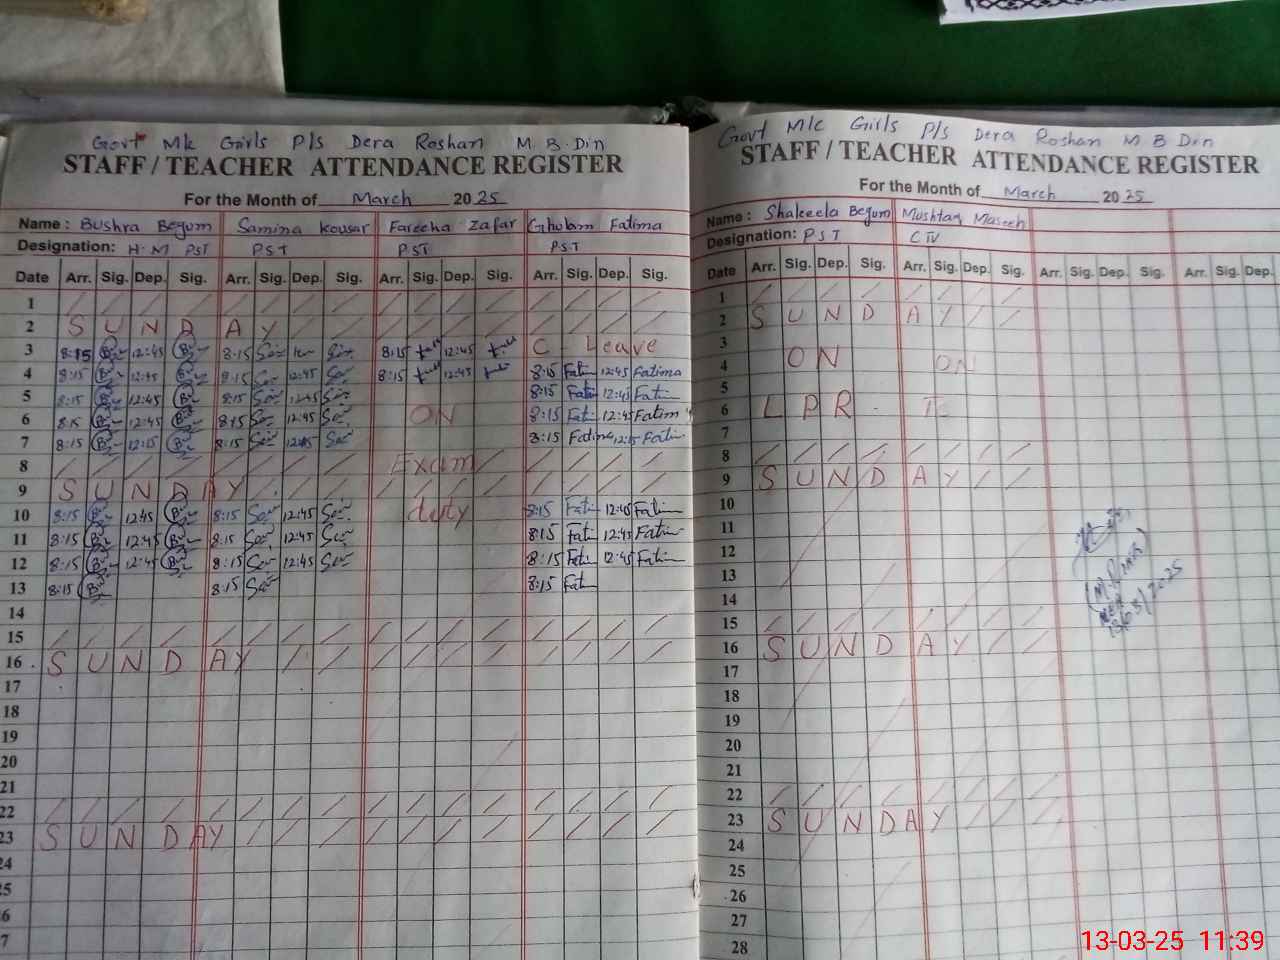 Govt Mc Girls P/s Dera Roshan M. B. Din
STAFF / TEACHER ATTENDANCE REGISTER
For the Month of March 2025
Name : Bushra Begum Samina Kousar Fareeha Zafar Ghulam Fatima
Designation: H.M PST PST PST PST
Date Arr. Sig. Dep. Sig. Arr. Sig. Dep. Sig. Arr. Sig. Dep. Sig. Arr. Sig. Dep. Sig.
1
2 S U N D A Y
3 8:15 12:45 8:15 8:15 12:45 C - Leave
4 8:15 12:45 8:15 12:45 8:15 12:45 8:15 Fatim 12:45 Fatima
5 8:15 12:45 8:15 12:45 8:15 Fatim 12:45 Fatim
6 8:15 12:45 8:15 12:45 ON 8:15 Fatim 12:45 Fatim
7 8:15 12:15 8:15 12:15 8:15 Fatima 12:15 Fatim
8 Exam
9 S U N D A Y
10 8:15 12:45 8:15 12:45 duty 8:15 Fatim 12:45 Fatim
11 8:15 12:45 8:15 12:45 8:15 Fatim 12:45 Fatim
12 8:15 12:45 8:15 12:45 8:15 Fatim 12:45 Fatim
13 8:15 8:15 8:15 Fatim
14
15
16 S U N D A Y
17
18
19
20
21
22
23 S U N D A Y
24
25
26
27
Govt Mc Girls P/s Dera Roshan M B Din
STAFF / TEACHER ATTENDANCE REGISTER
For the Month of March 2025
Name : Shakeela Begum Mushtaq Maseeh
Designation: PST CIV
Date Arr. Sig. Dep. Sig. Arr. Sig. Dep. Sig. Arr. Sig. Dep. Sig. Arr. Sig. Dep.
1
2 S U N D A Y
3
4 ON ON
5
6 L P R
7
8
9 S U N D A Y
10
11
12
13
14
15
16 S U N D A Y
17
18
19
20
21
22
23 S U N D A Y
24
25
26
27
28
13/03/2025
13-03-25 11:39